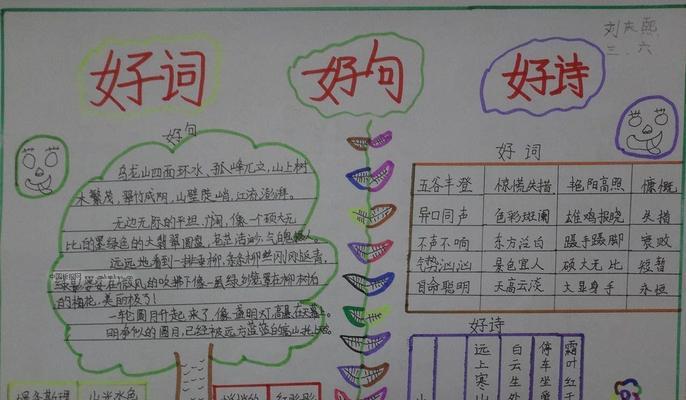 刘东熙
三、六
好词
好句
好诗
好句
乌龙山四面环水、孤峰兀立,山上树
木繁茂,翠竹成阴,山壁陡峭,江涛澎湃。
无边无际的平坦、广阔,像一个硕大无
比的墨绿色的大翡翠圆盘,苍茫浩渺,气魄摄人。
远远地看到一排垂柳,条条柳丝刚刚延青,
在微风的吹拂下像一
的梅花,美丽极了!
一轮圆月升起来了,像一盏明灯,高悬在天幕上。
明净似的圆月,已经被远方
好词
五谷丰登 惊慌失措 艳阳高照 慷慨
异口同声 色彩斑斓 雄鸡报晓 失措
不声不响 东方泛白 蹑手蹑脚 衰败
气势汹汹 景色宜人 硕大无比 短暂
自命聪明 天高云淡 大显身手 永恒
好诗
远上寒山
白云生处
停车坐爱
霜叶红于
山
山光水色